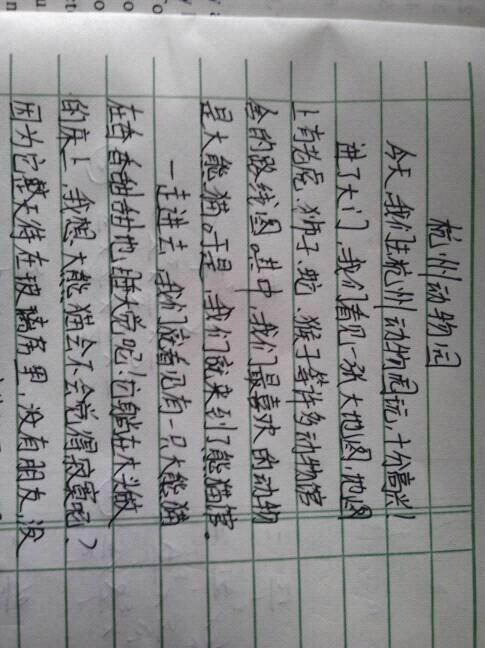 杭州动物园
今天,我们在杭州动物园玩,十分高兴!
进了大门,我们看见一张大地图,地图
上有老虎、狮子、蛇、猴子等许多动物宿
舍的路线图。其中,我们最喜欢的动物
是大熊猫。于是,我们就来到了熊猫馆。
一走进去,我们就看见有一只大熊猫
在香香甜甜地睡大觉呢!它躺在木头做
的床上,我想:大熊猫会不会觉得寂寞呢?
因为它整天待在玻璃房里,没有朋友,没